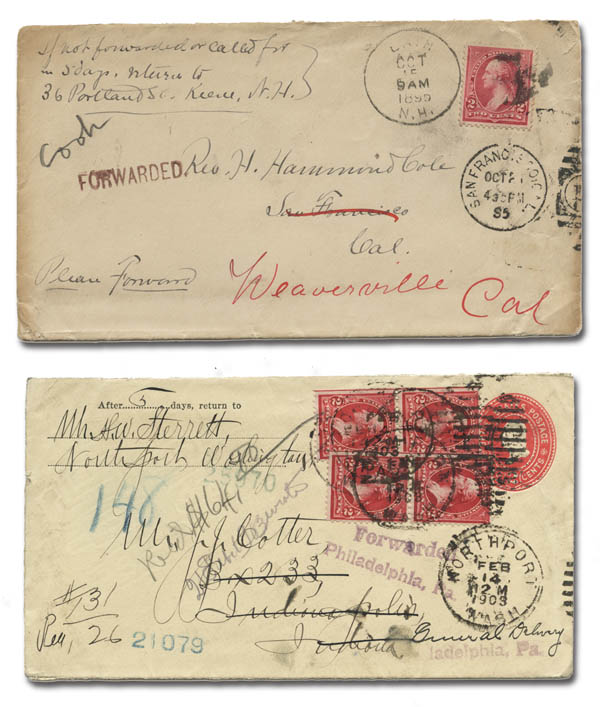 If not forwarded or called for
in 5 days, return to
36 Portland St. Keene, N.H.
OCT
15
9AM
1895
N.H.
2
TWO CENTS
FORWARDED.
Rev. H. Hammond Cole
San Francisco
Cal.
SAN FRANCISCO, CAL.
OCT 21
4 30 PM
95
Please Forward
Weaverville Cal
After 5 days, return to
Mr. A.W. Sterrett,
Northport Washington
148
Mr. J. J. Cotter
Box 233
Indianapolis,
Indiana
General Delivery
Forwarded
Philadelphia, Pa.
ladelphia, Pa.
POSTAGE
CENTS
NORTHPORT
FEB
14
12M
1903
WASH
#131
26
21079